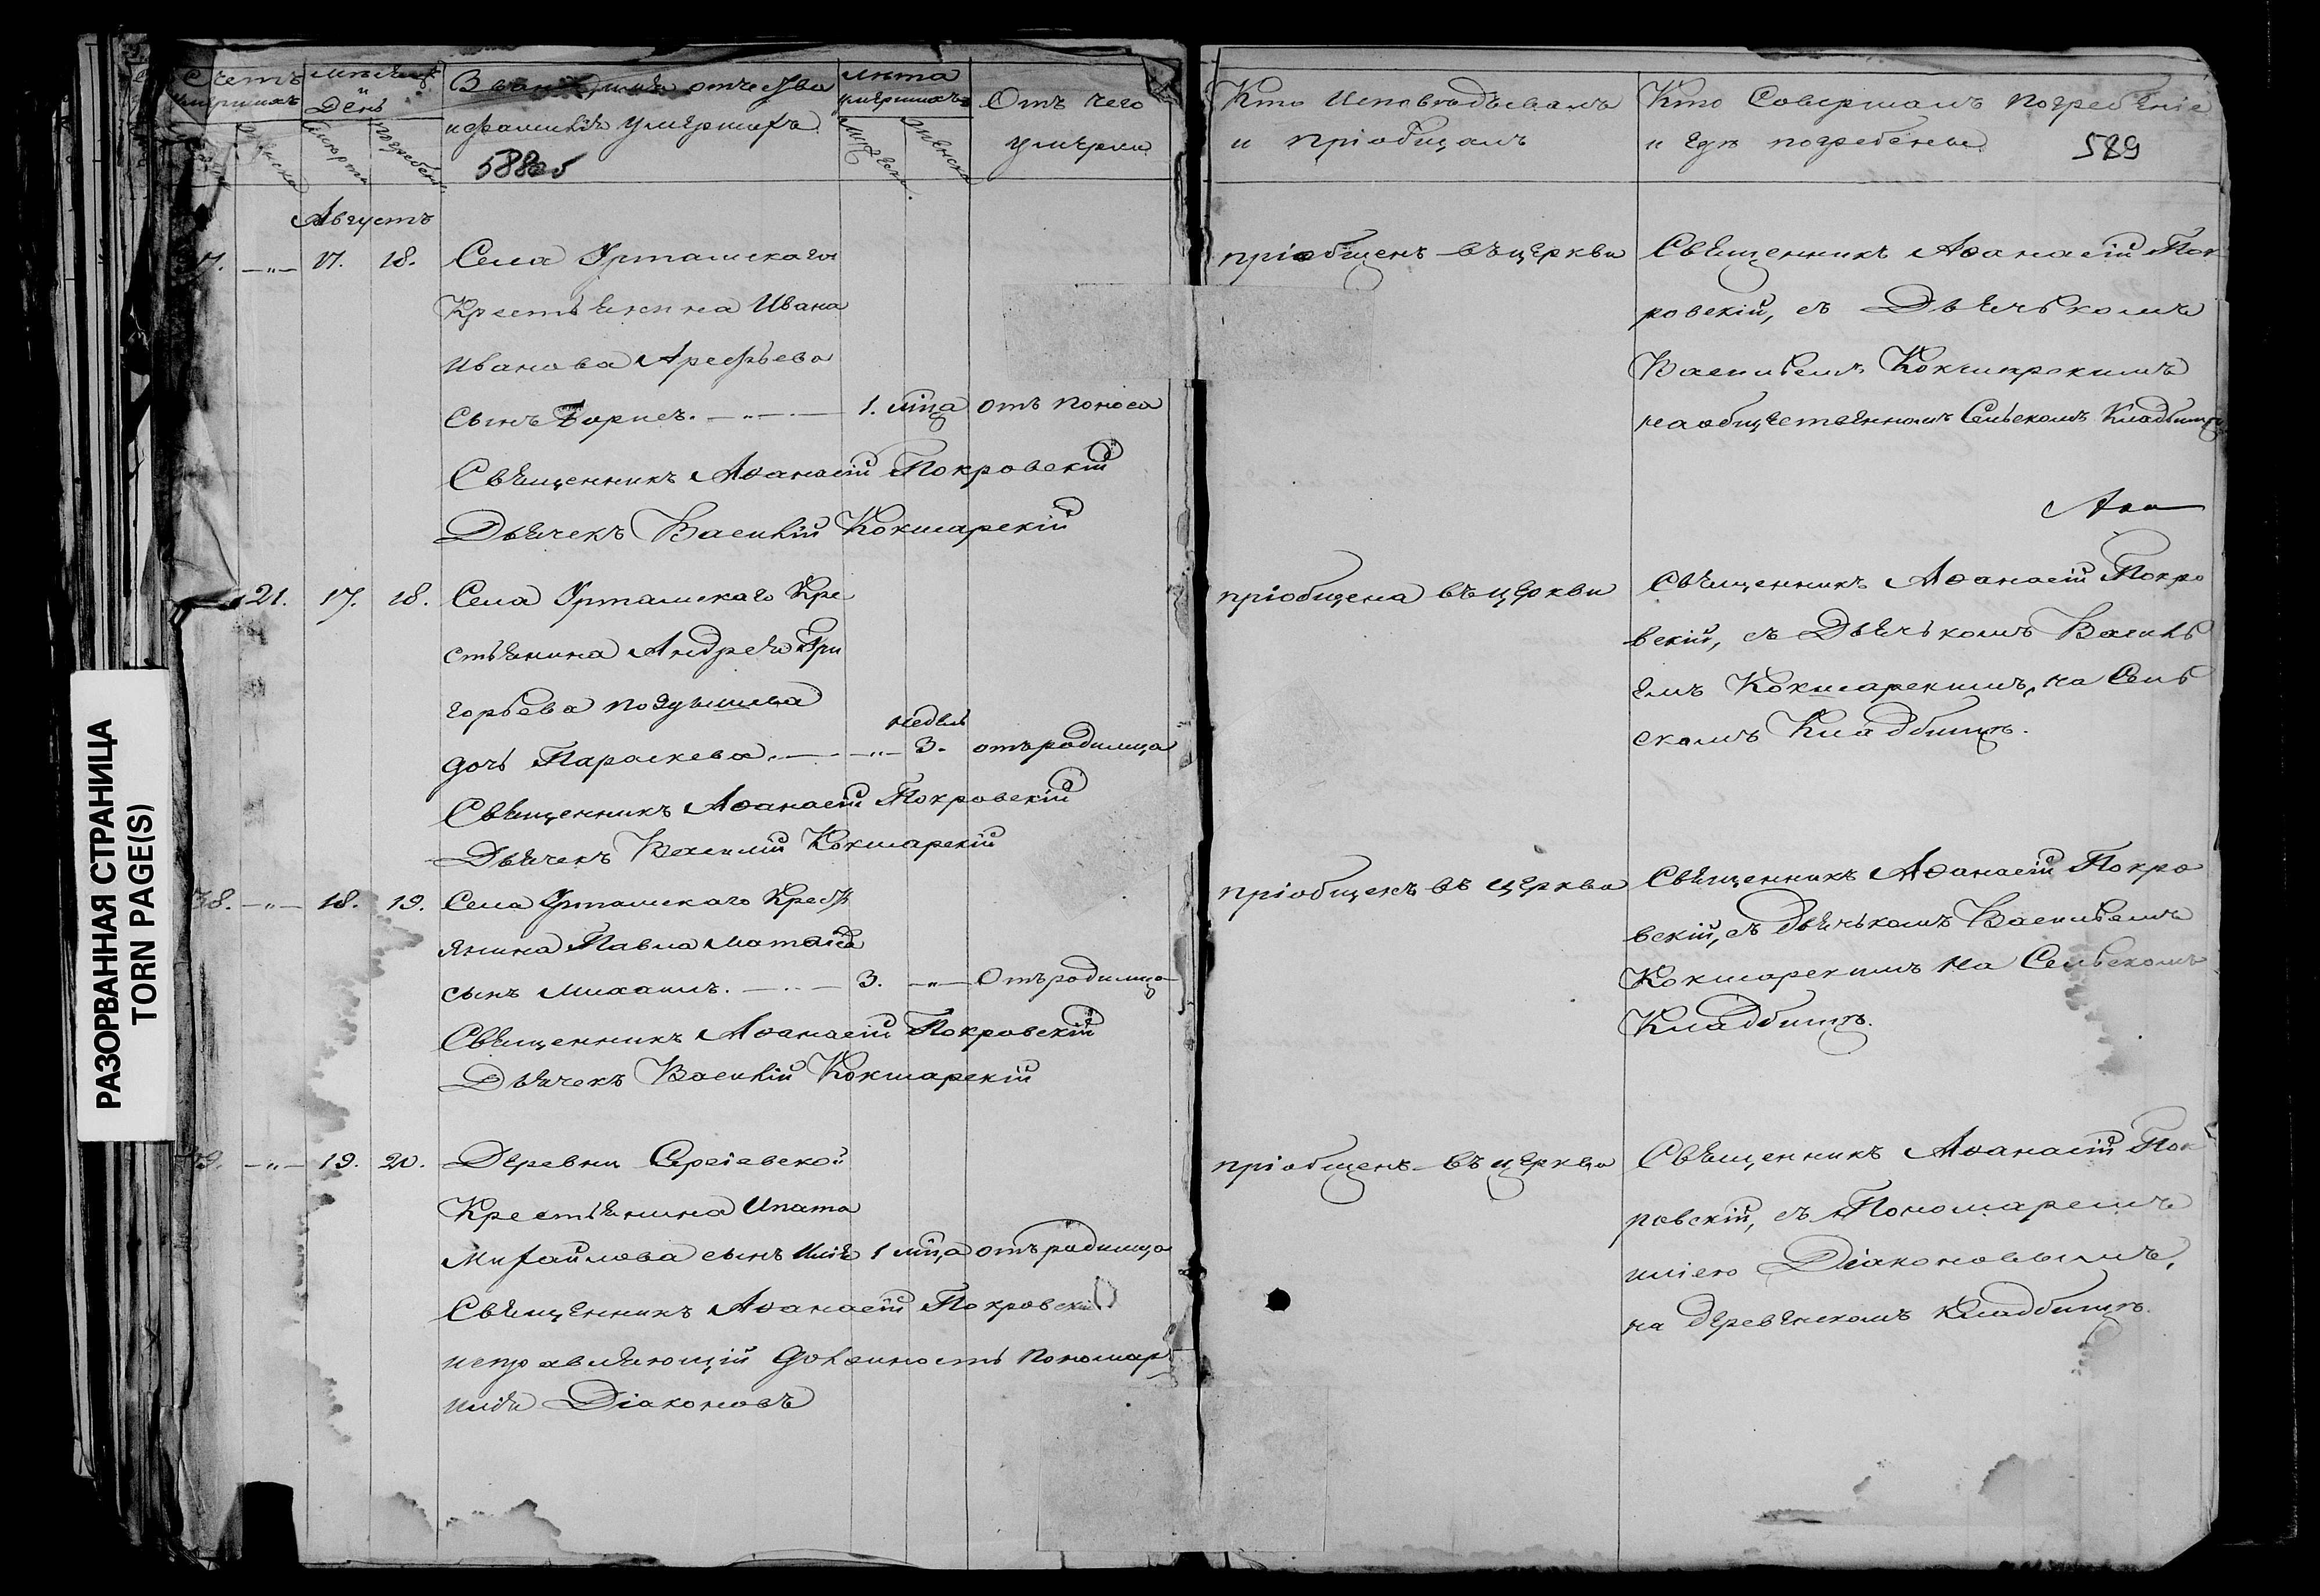 РАЗОРВАННАЯ СТРАНИЦА
TORN PAGE(S)
Счетъ умершихъ
Мѣсяцъ и День
Званіе, имя, отчество
и фамилія умершихъ
5880б
Лѣта умершихъ
Отъ чего
умерли
женска
смерти
погребенія
мужеска
женска
Августъ
17. 18. Села Урташскаго
Крестьянина Ивана
Иванова Арефьева
сынъ Борисъ. 1. мца отъ поноса
Священникъ Аѳанасій Покровскій
Дьячекъ Василій Кокшарскій
21. 17. 18. Села Урташскаго Кре
стьянина Андрея Гри
горьева
недѣль
дочь Параскева. 3. отъ родимца
Священникъ Аѳанасій Покровскій
Дьячекъ Василій Кокшарскій
38. 18. 19. Села Урташскаго Кресть
янина Павла
сынъ Михаилъ. 3. Отъ родимца
Священникъ Аѳанасій Покровскій
Дьячекъ Василій Кокшарскій
19. 20. Деревни Сергіевской
Крестьянина Ипата
Михайлова сынъ Илія 1 мца отъ родимца
Священникъ Аѳанасій Покровскій
исправляющій должность Пономар
Илія Діаконовъ
Кто Исповѣдывалъ
и пріобщалъ
Кто Совершалъ погребеніе
и гдѣ погребены
589
пріобщенъ въ церкви
Священникъ Аѳанасій Пок
ровскій, съ Дьячькомъ
Васильемъ Кокшарскимъ
на общественномъ Сельскомъ Кладбищѣ
пріобщена въ церкви
Священникъ Аѳанасій Покро
вскій, съ Дьячькомъ Василь
емъ Кокшарскимъ, на Сель
скомъ Кладбищѣ.
пріобщенъ въ церкви
Священникъ Аѳанасій Покро
вскій, съ Дьячькомъ Васильемъ
Кокшарскимъ на Сельскомъ
Кладбищѣ.
пріобщенъ въ церкви
Священникъ Аѳанасій Пок
ровскій, съ Пономаремъ
Иліею Діаконовымъ,
на деревенскомъ кладбищѣ.